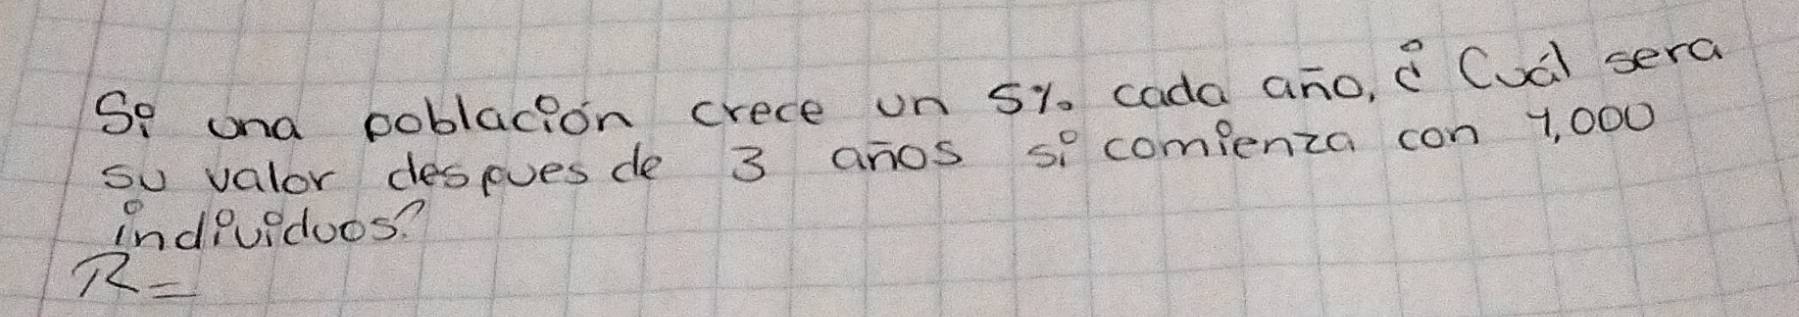 Si una población crece un 5% cada año, ¿Cuál sera
su valor despues de 3 años si comienza con 1,000
individuos?
R=